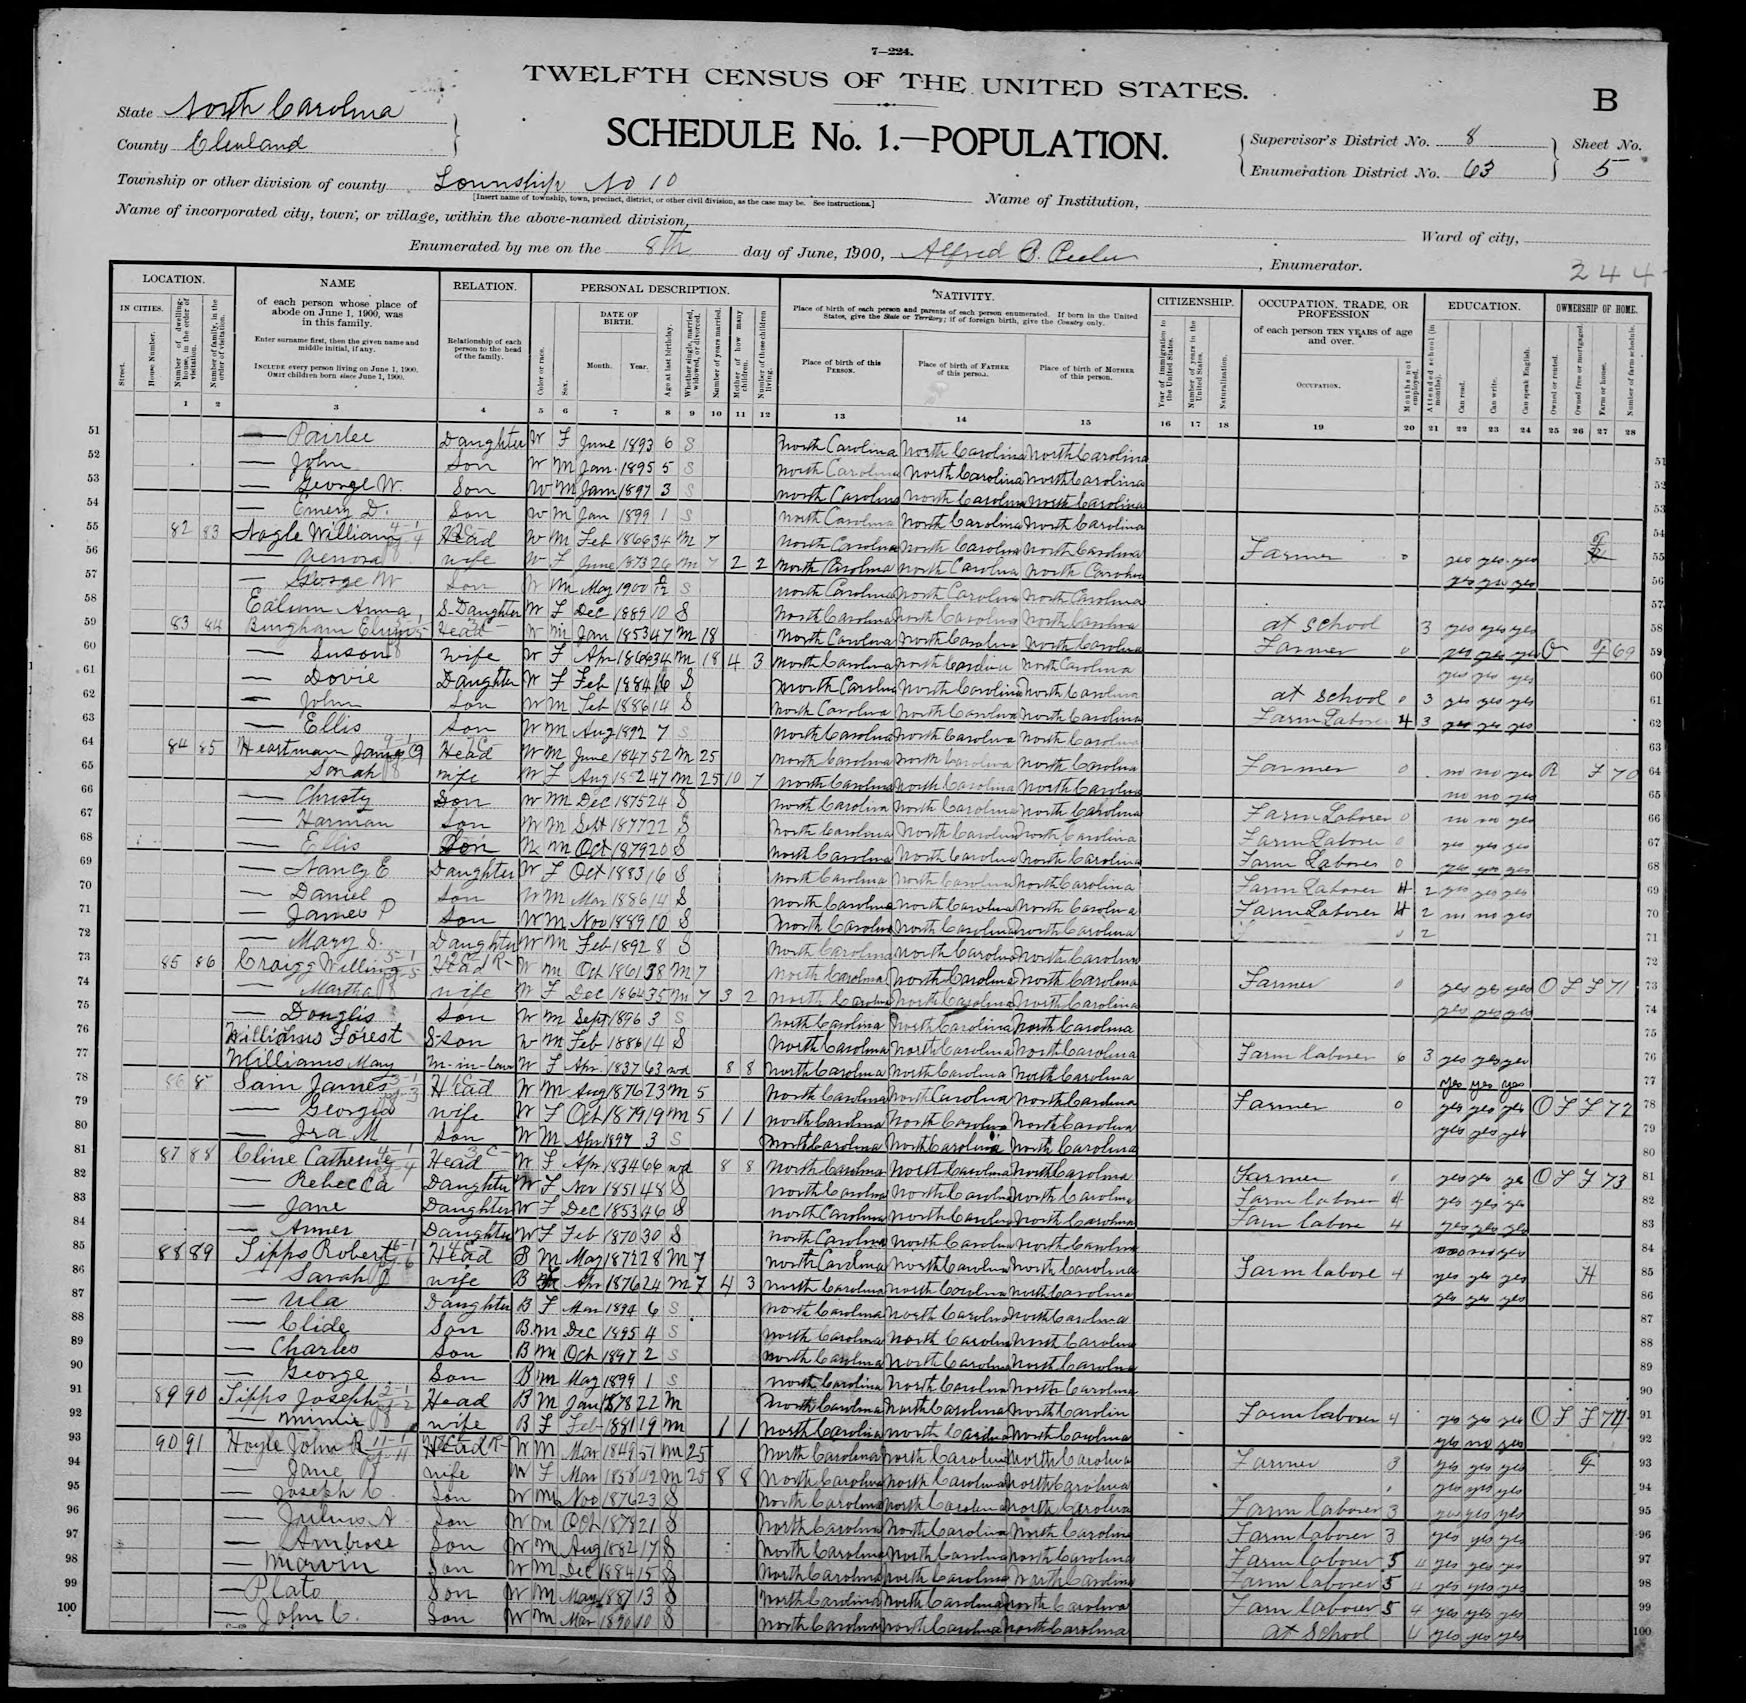 7—224.
TWELFTH CENSUS OF THE UNITED STATES.
B
State North Carolina
SCHEDULE No. 1.—POPULATION.
County Cleveland
Supervisor's District No. 8
Enumeration District No. 63
Sheet No. 5
Township or other division of county Township No 10
[Insert name of township, town, precinct, district, or other civil division, as the case may be. See instructions.]
Name of Institution,
Name of incorporated city, town, or village, within the above-named division,
Ward of city,
Enumerated by me on the 8th day of June, 1900, Alfred , Enumerator.
244
LOCATION.
IN CITIES.
Street.
House Number.
Number of dwelling-house, in the order of visitation.
Number of family, in the order of visitation.
NAME
of each person whose place of abode on June 1, 1900, was in this family.
Enter surname first, then the given name and middle initial, if any.
INCLUDE every person living on June 1, 1900.
OMIT children born since June 1, 1900.
RELATION.
Relationship of each person to the head of the family.
PERSONAL DESCRIPTION.
Color or race.
Sex.
DATE OF BIRTH.
Month. Year.
Age at last birthday.
Whether single, married, widowed, or divorced.
Number of years married.
Mother of how many children.
Number of these children living.
NATIVITY.
Place of birth of each person and parents of each person enumerated. If born in the United States, give the State or Territory; if of foreign birth, give the Country only.
Place of birth of this PERSON.
Place of birth of FATHER of this person.
Place of birth of MOTHER of this person.
CITIZENSHIP.
Year of immigration to the United States.
Number of years in the United States.
Naturalization.
OCCUPATION, TRADE, OR PROFESSION
of each person TEN YEARS of age and over.
OCCUPATION.
Months not employed.
EDUCATION.
Attended school (in months).
Can read.
Can write.
Can speak English.
OWNERSHIP OF HOME.
Owned or rented.
Owned free or mortgaged.
Farm or house.
Number of farm schedule.
1 2 3 4 5 6 7 8 9 10 11 12 13 14 15 16 17 18 19 20 21 22 23 24 25 26 27 28
51 — Pairlee Daughter W F June 1893 6 S North Carolina North Carolina North Carolina
52 — John Son W M Jan 1895 5 S North Carolina North Carolina North Carolina
53 — George W. Son W M Jan 1897 3 S North Carolina North Carolina North Carolina
54 — Emery D. Son W M Jan 1899 1 S North Carolina North Carolina North Carolina
55 82 83 William Head W M Feb 1866 34 M 7 North Carolina North Carolina North Carolina Farmer 0 yes yes yes
56 — wife W F June 1873 26 M 7 2 2 North Carolina North Carolina North Carolina yes yes yes
57 — George W Son W M May 1900 S North Carolina North Carolina North Carolina
58 Anna S-Daughter W F Dec 1889 10 S North Carolina North Carolina North Carolina at school 3 yes yes yes
59 83 84 Bingham Head W M Jan 1853 47 M 18 North Carolina North Carolina North Carolina Farmer 0 yes yes yes O 69
60 — Susan wife W F Apr 1866 34 M 18 4 3 North Carolina North Carolina North Carolina yes yes yes
61 — Dovie Daughter W F Feb 1884 16 S North Carolina North Carolina North Carolina at school 0 3 yes yes yes
62 — John Son W M Feb 1886 14 S North Carolina North Carolina North Carolina Farm Laborer 4 3 yes yes yes
63 — Ellis Son W M Aug 1892 7 S North Carolina North Carolina North Carolina
64 84 85 Heartman James Head W M June 1847 52 M 25 North Carolina North Carolina North Carolina Farmer 0 no no yes R F 70
65 — Sarah wife W F Aug 1852 47 M 25 10 7 North Carolina North Carolina North Carolina no no yes
66 — Christy Son W M Dec 1875 24 S North Carolina North Carolina North Carolina Farm Laborer 0 no no yes
67 — Harman Son W M Sept 1877 22 S North Carolina North Carolina North Carolina Farm Laborer 0 yes yes yes
68 — Ellis Son W M Oct 1879 20 S North Carolina North Carolina North Carolina Farm Laborer 0 yes yes yes
69 — Nancy E Daughter W F Oct 1883 16 S North Carolina North Carolina North Carolina Farm Laborer 4 2 yes yes yes
70 — Daniel Son W M Mar 1886 14 S North Carolina North Carolina North Carolina Farm Laborer 4 2 no no yes
71 — James P Son W M Nov 1889 10 S North Carolina North Carolina North Carolina 0 2
72 — Mary S. Daughter W M Feb 1892 8 S North Carolina North Carolina North Carolina
73 85 86 Craigg William Head W M Oct 1861 38 M 7 North Carolina North Carolina North Carolina Farmer 0 yes yes yes O F F 71
74 — Martha wife W F Dec 1864 35 M 7 3 2 North Carolina North Carolina North Carolina yes yes yes
75 — Douglis Son W M Sept 1896 3 S North Carolina North Carolina North Carolina
76 Williams Forest S-son W M Feb 1886 14 S North Carolina North Carolina North Carolina Farm laborer 6 3 yes yes yes
77 Williams Mary M-in-law W F Apr 1837 63 wd 8 8 North Carolina North Carolina North Carolina yes yes yes
78 86 8 Sam James Head W M Aug 1876 23 M 5 North Carolina North Carolina North Carolina Farmer 0 yes yes yes O F F 72
79 — Georgia wife W F Oct 1879 19 M 5 1 1 North Carolina North Carolina North Carolina yes yes yes
80 — Ira M Son W M Apr 1897 3 S North Carolina North Carolina North Carolina
81 87 88 Cline Catherine Head W F Apr 1834 66 wd 8 8 North Carolina North Carolina North Carolina Farmer yes yes ye O F F 73
82 — Rebecca Daughter W F Nov 1851 48 S North Carolina North Carolina North Carolina Farm laborer 4 yes yes yes
83 — Jane Daughter W F Dec 1853 46 S North Carolina North Carolina North Carolina Farm labore 4 yes yes yes
84 — Annes Daughter W F Feb 1870 30 S North Carolina North Carolina North Carolina no no yes
85 88 89 Tipps Robert Head B M May 1872 28 M 7 North Carolina North Carolina North Carolina Farm labore 4 yes yes yes H
86 Sarah J wife B Apr 1876 24 M 7 4 3 North Carolina North Carolina North Carolina yes yes yes
87 — Ula Daughter B F Mar 1894 6 S North Carolina North Carolina North Carolina
88 — Clide Son B M Dec 1895 4 S North Carolina North Carolina North Carolina
89 — Charles Son B M Oct 1897 2 S North Carolina North Carolina North Carolina
90 — George Son B M May 1899 1 S North Carolina North Carolina North Carolina
91 89 90 Tipps Joseph Head B M Jan 1878 22 M North Carolina North Carolina North Carolin Farm laborer 4 yes yes yes O F F 74
92 — Minnie wife B F Feb 1881 19 M 1 1 North Carolina North Carolina North Carolina yes no yes
93 90 91 Hoyle John R Head W M Mar 1849 51 M 25 North Carolina North Carolina North Carolina Farmer 3 yes yes yes F
94 — Jane wife W F Mar 1858 42 M 25 8 8 North Carolina North Carolina North Carolina yes yes yes
95 — Joseph C. Son W M Nov 1876 23 S North Carolina North Carolina North Carolina Farm laborer 3 yes yes yes
96 — Julius A Son W M Oct 1878 21 S North Carolina North Carolina North Carolina Farm laborer 3 yes yes yes
97 — Ambrose Son W M Aug 1882 17 S North Carolina North Carolina North Carolina Farm laborer 5 4 yes yes yes
98 — Marvin Son W M Dec 1884 15 S North Carolina North Carolina North Carolina Farm laborer 5 4 yes yes yes
99 — Plato Son W M May 1887 13 S North Carolina North Carolina North Carolina Farm laborer 5 4 yes yes yes
100 — John C. Son W M Mar 1890 10 S North Carolina North Carolina North Carolina at School 4 yes yes yes